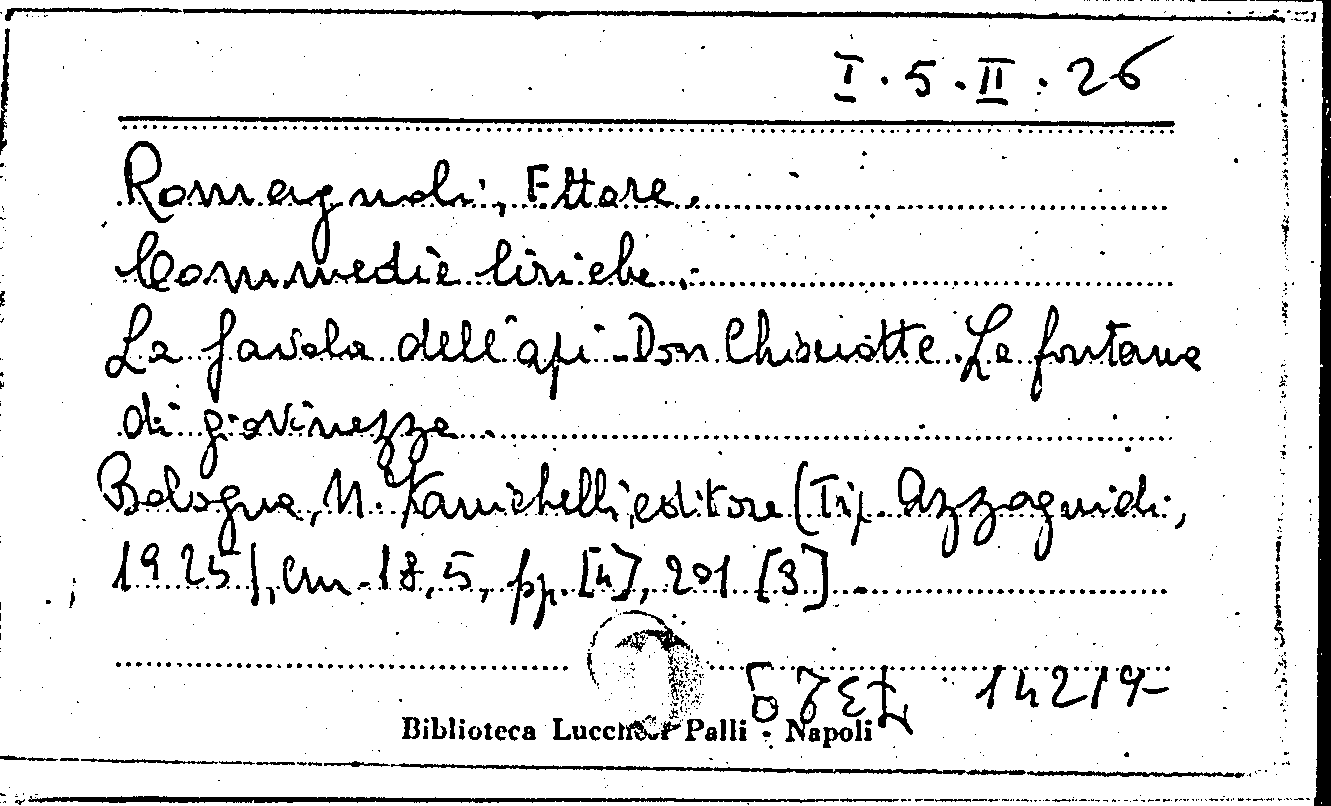 I. 5. II. 26
Romagnoli, Ettore.
Commedie liriche.
La favola dell'api - Don Chisciotte. La fontana
di giovinezza.
Bologna, N. Zanichelli, editore (Tip. Azzoguidi,
1925), cm. 18,5, pp. [4], 201 [3].
14219
Biblioteca Lucchesi Palli - Napoli